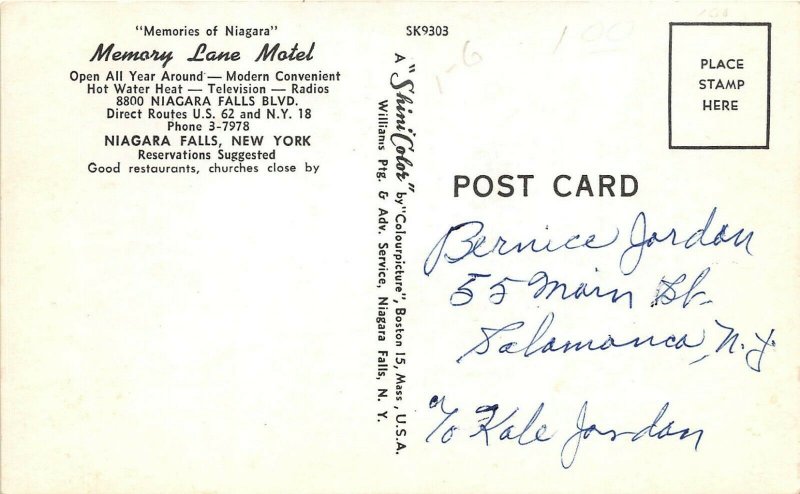 "Memories of Niagara"
Memory Lane Motel
Open All Year Around — Modern Convenient
Hot Water Heat — Television — Radios
8800 NIAGARA FALLS BLVD.
Direct Routes U.S. 62 and N.Y. 18
Phone 3-7978
NIAGARA FALLS, NEW YORK
Reservations Suggested
Good restaurants, churches close by
SK9303
A "ShiniColor" by "Colourpicture", Boston 15, Mass., U.S.A.
Williams Ptg. & Adv. Service, Niagara Falls, N. Y.
1-6
PLACE
STAMP
HERE
POST CARD
Bernice Jordan
55 Main St.
Salamanca, N.Y.
c/o Kale Jordan